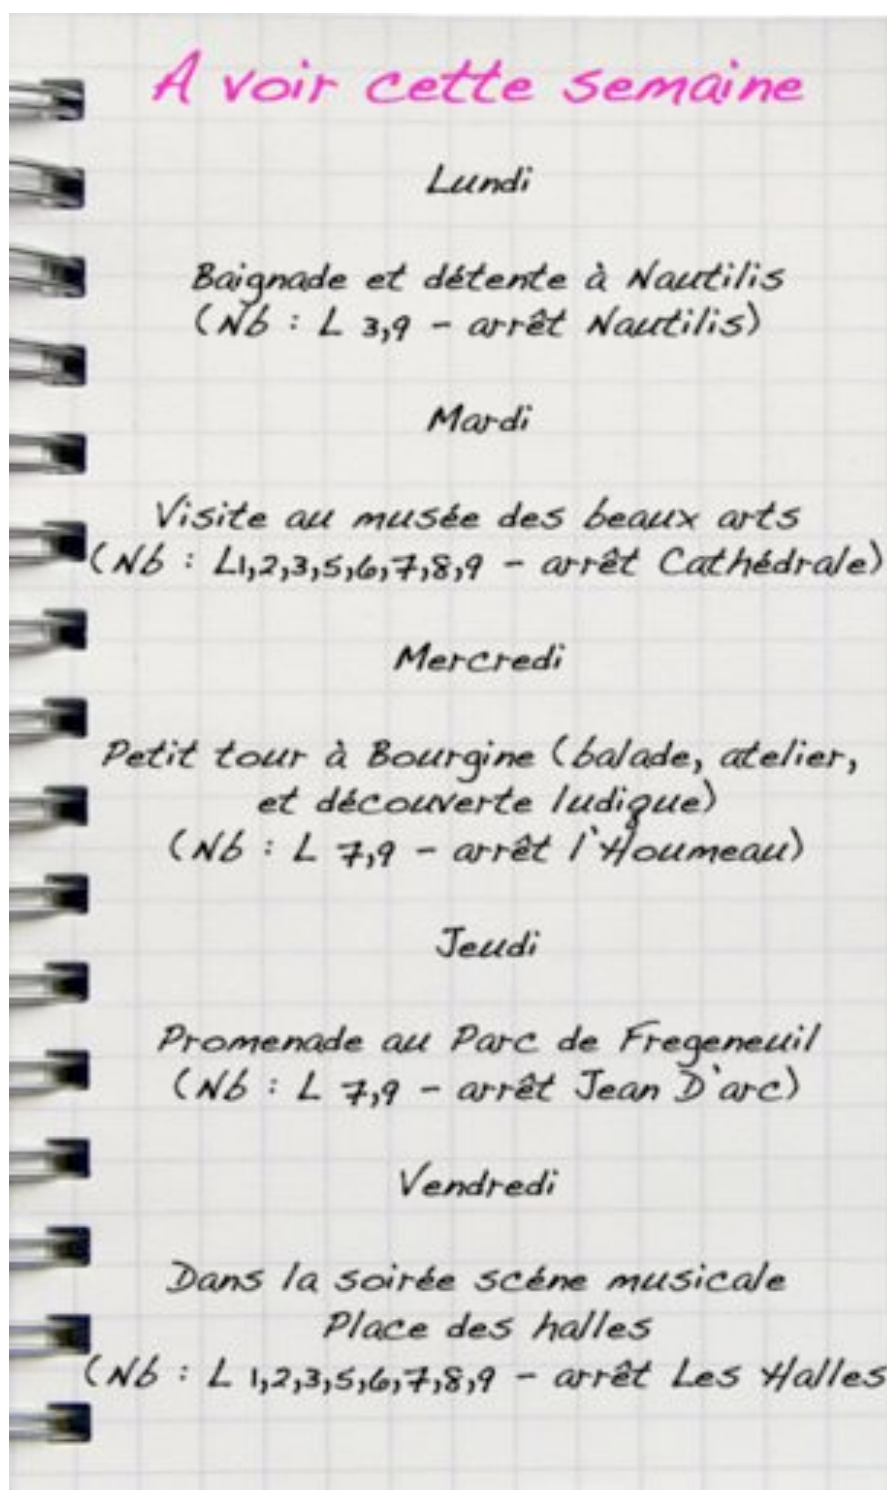 A voir cette semaine
Lundi
Baignade et détente à Nautilis
(Nb : L 3,9 - arrêt Nautilis)
Mardi
Visite au musée des beaux arts
(Nb : L1,2,3,5,6,7,8,9 - arrêt Cathédrale)
Mercredi
Petit tour à Bourgine (balade, atelier,
et découverte ludique)
(Nb : L 7,9 - arrêt l'Houmeau)
Jeudi
Promenade au Parc de Fregeneuil
(Nb : L 7,9 - arrêt Jean D'arc)
Vendredi
Dans la soirée scéne musicale
Place des halles
(Nb : L 1,2,3,5,6,7,8,9 - arrêt Les Halles